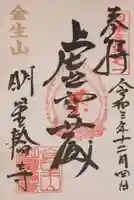 奉拝
令和三年十二月四日
虚空蔵
金生山
明星輪寺